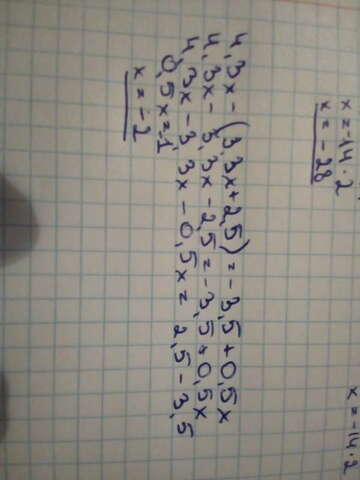 x = -14 · 2
x = -28
4,3x - (3,3x + 2,5) = -3,5 + 0,5x
4,3x - 3,3x - 2,5 = -3,5 + 0,5x
4,3x - 3,3x - 0,5x = 2,5 - 3,5
0,5x = -1
x = -2
x = -14 · 2